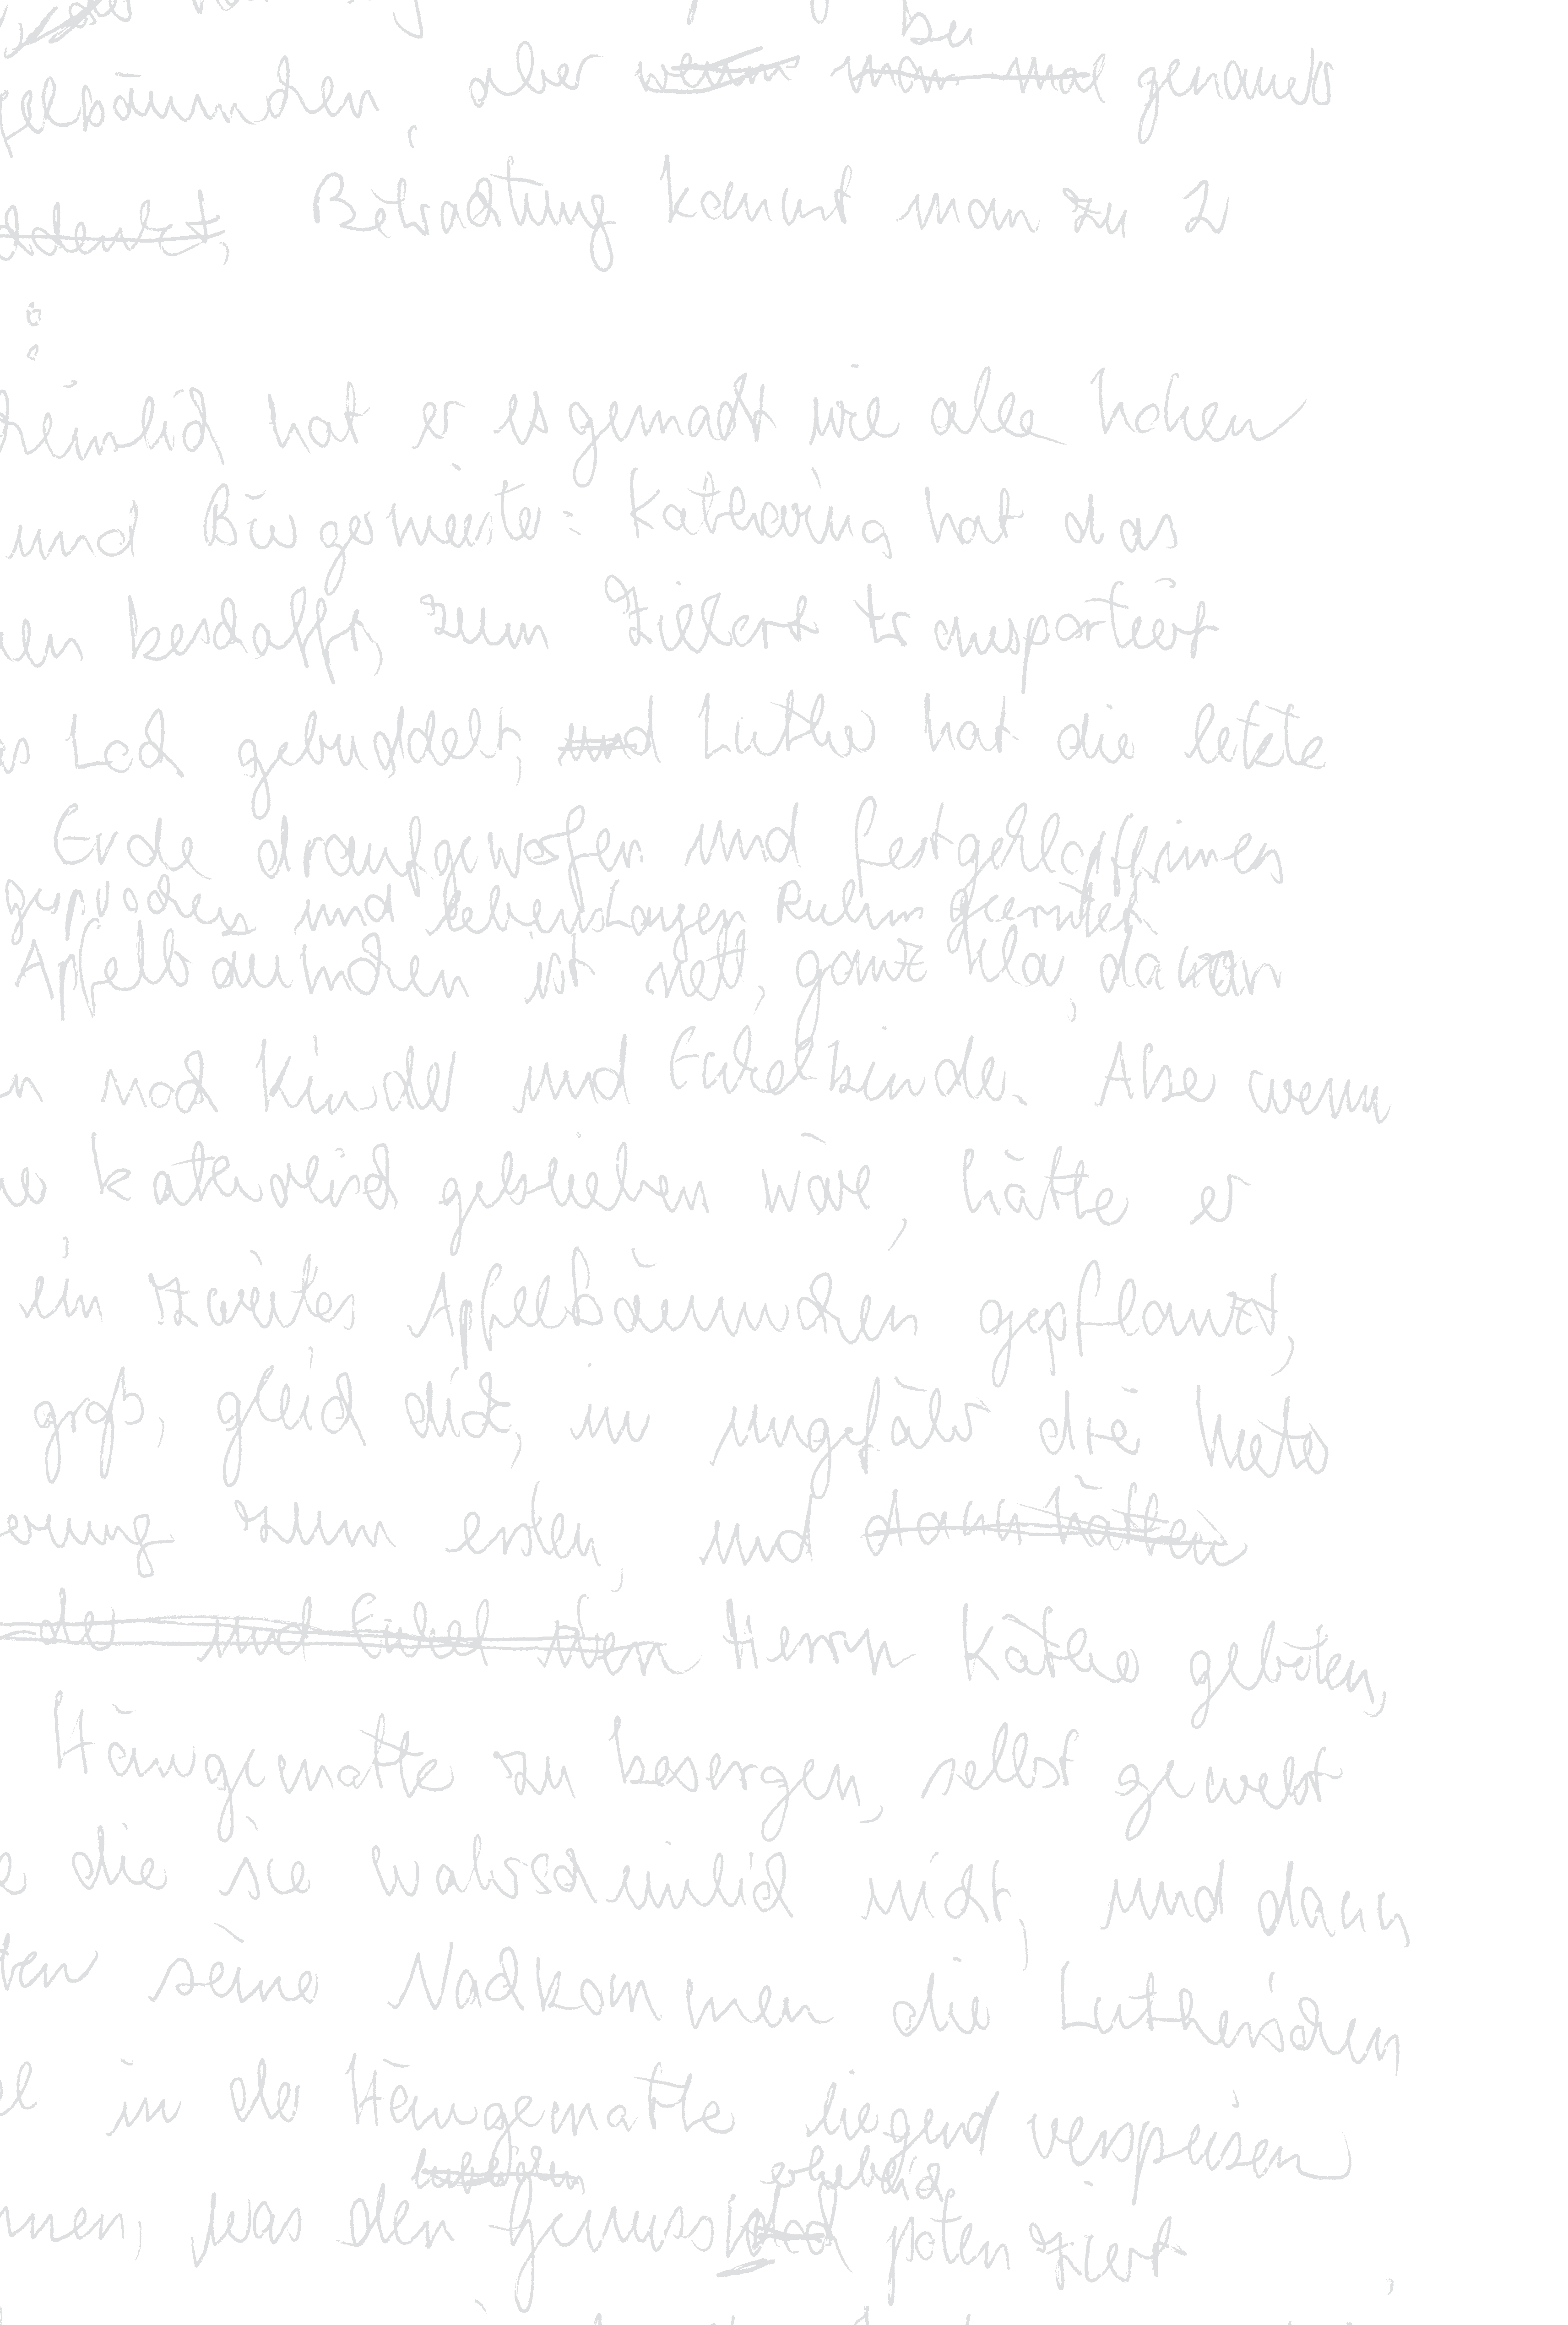 bei
felbäumchen, aber wenn man mal genauer
Betrachtung kommt man zu 2
:
heinlich hat er es gemacht wie alle hohen
und Bürgermeister: Katharina hat das
beschafft, zum Zielort transportiert
Loch gebuddelt, und Luther hat die letzte
Erde draufgeworfen und festgekloppt
und lebenslangen Ruhm geerntet.
Apfelbäumchen ist nett, ganz klar, davon
noch Kinder und Enkelkinder. Aber wenn
katholisch geblieben wäre, hätte er
ein zweites Apfelbäumchen gepflanzt,
groß, gleich dick, in ungefähr drei Meter
zum ersten, und dann hätten
und Enkel Herrn Käthe gebeten,
Hängematte zu besorgen, selbst gewebt
die sie wahrscheinlich nicht, und dann
seine Nachkommen die Lutherischen
in der Hängematte liegend verspeisen
erheblich
nen, was den Genuss noch potenziert